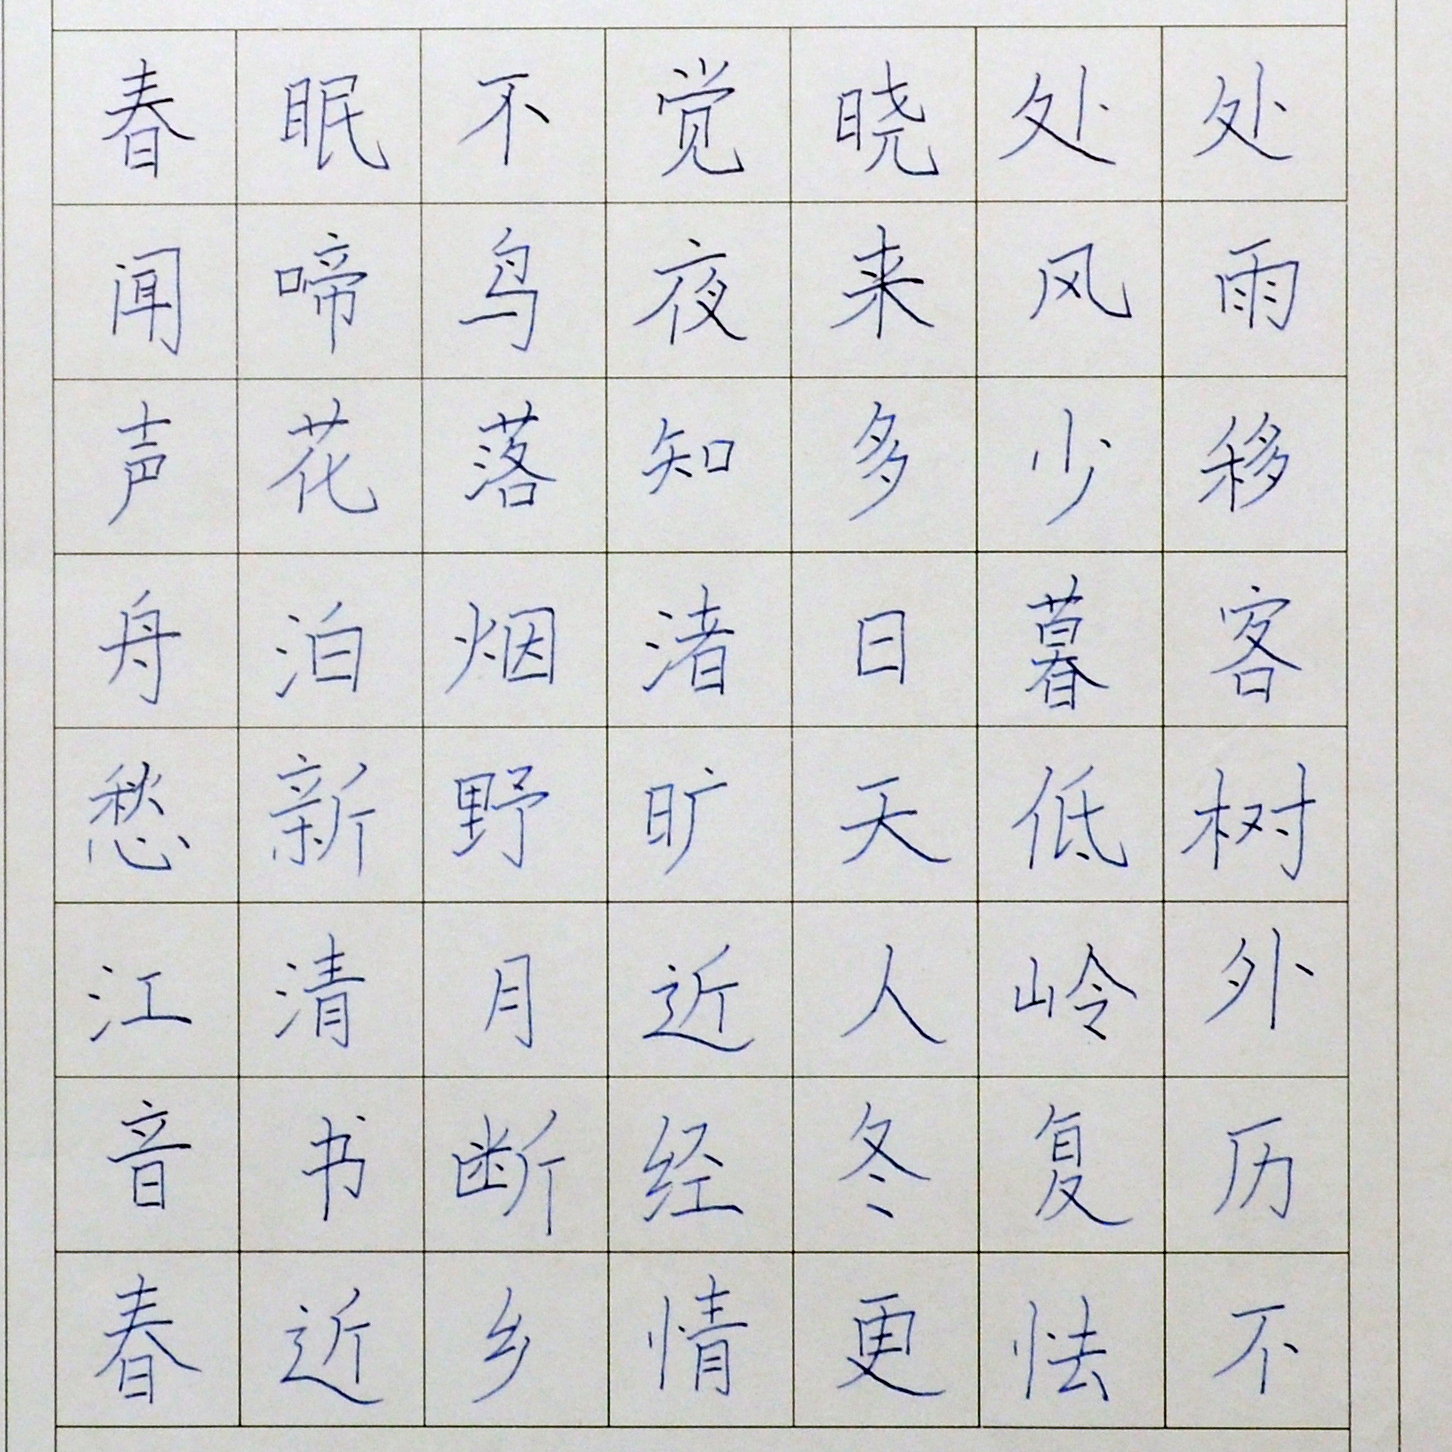 春眠不觉晓处处
闻啼鸟夜来风雨
声花落知多少移
舟泊烟渚日暮客
愁新野旷天低树
江清月近人岭外
音书断经冬复历
春近乡情更怯不